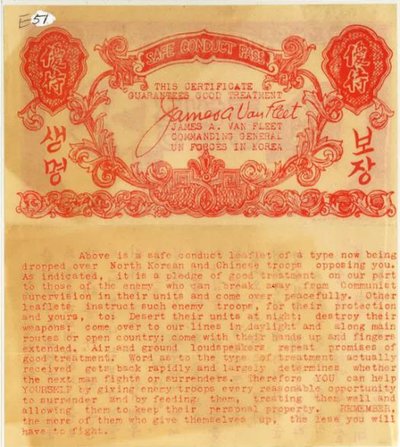 E-51
SAFE CONDUCT PASS
優待
優待
THIS CERTIFICATE
GUARANTEES GOOD TREATMENT
James A Van Fleet
JAMES A. VAN FLEET
COMMANDING GENERAL
UN FORCES IN KOREA
생명
보장
Above is a safe conduct leaflet of a type now being
dropped over North Korean and Chinese troops opposing you.
As indicated, it is a pledge of good treatment on our part
to those of the enemy who can break away from Communist
supervision in their units and come over peacefully. Other
leaflets instruct such enemy troops, for their protection
and yours, to: Desert their units at night; destroy their
weapons; come over to our lines in daylight and along main
routes or open country; come with their hands up and fingers
extended. Air and ground loudspeakers repeat promises of
good treatment. Word as to the type of treatment actually
received gets back rapidly and largely determines whether
the next man fights or surrenders. Therefore YOU can help
YOURSELF by giving enemy troops every reasonable opportunity
to surrender and by feeding them, treating them well and
allowing them to keep their personal property. REMEMBER,
the more of them who give themselves up, the less you will
have to fight.